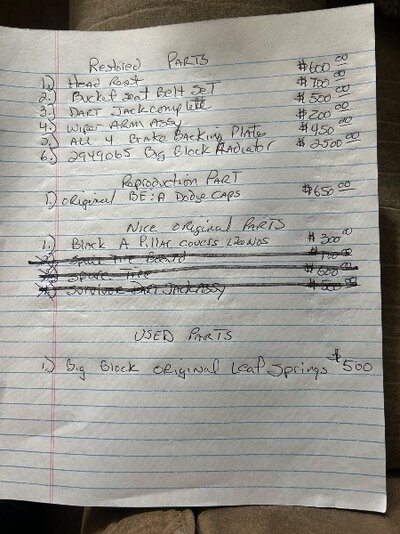 Restored Parts
1.) Head Rest $600.00
2.) Bucket Seat Belt Set $700.00
3.) DART Jack Complete $500.00
4.) Wiper Arm Assy $200.00
5.) ALL 4 Brake Backing Plate $450.00
6.) 2949065 Big Block Radiator $2500.00
Reproduction Part
1.) original BE:A Dodge Caps $650.00
Nice Original Parts
1.) Black A Pillar covers $300.00
Spare Tire
Survivor DART Jack Assy $500.00
USED PARTS
1.) Big Block original Leaf Springs $500